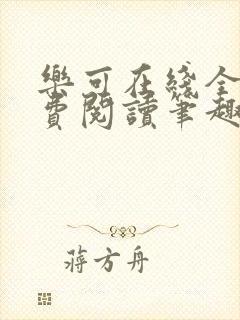 樂可在綫全
費閱讀筆趣
蔣方舟